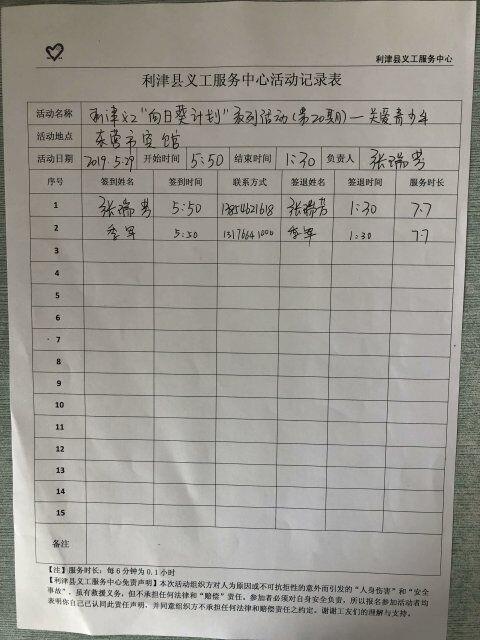 利津县义工服务中心
利津县义工服务中心活动记录表
活动名称 利津义工"向日葵计划"系列活动(第20期)—关爱青少年
活动地点 东营市宾馆
活动日期 2019.5.29 开始时间 5:50 结束时间 1:30 负责人 张瑞芳
序号 签到姓名 签到时间 联系方式 签退姓名 签退时间 服务时长
1 张瑞芳 5:50 13854621618 张瑞芳 1:30 7.7
2 5:50 13176641000 1:30 7.7
3
4
5
6
7
8
9
10
11
12
13
14
15
备注
【注】服务时长:每6分钟为0.1小时
【利津县义工服务中心免责声明】本次活动组织方对人为原因或不可抗拒性的意外而引发的"人身伤害"和"安全
事故",虽有救援义务,但不承担任何法律和"赔偿"责任。参加者必须对自身安全负责,所以报名参加活动者均
表明你自己已认同此责任声明,并同意组织方不承担任何法律和赔偿责任之约定。谢谢工友们的理解与支持。